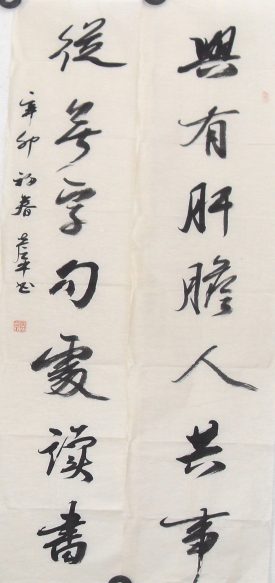 與有肝膽人共事
從無字句處讀書
辛卯初春